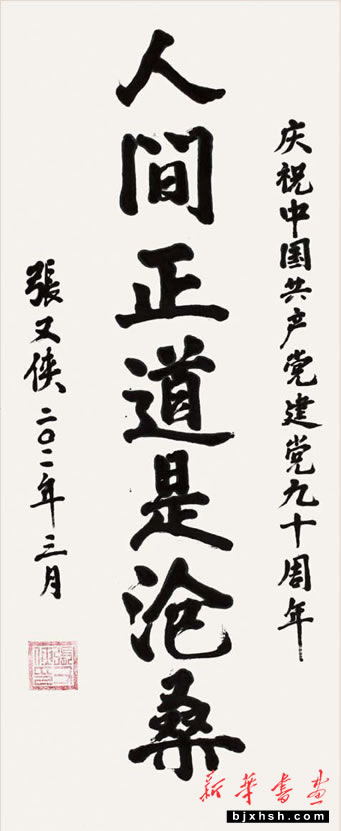 庆祝中国共产党建党九十周年
人间正道是沧桑
張又侠二〇一一年三月
新华书画
www.bjxhsh.com